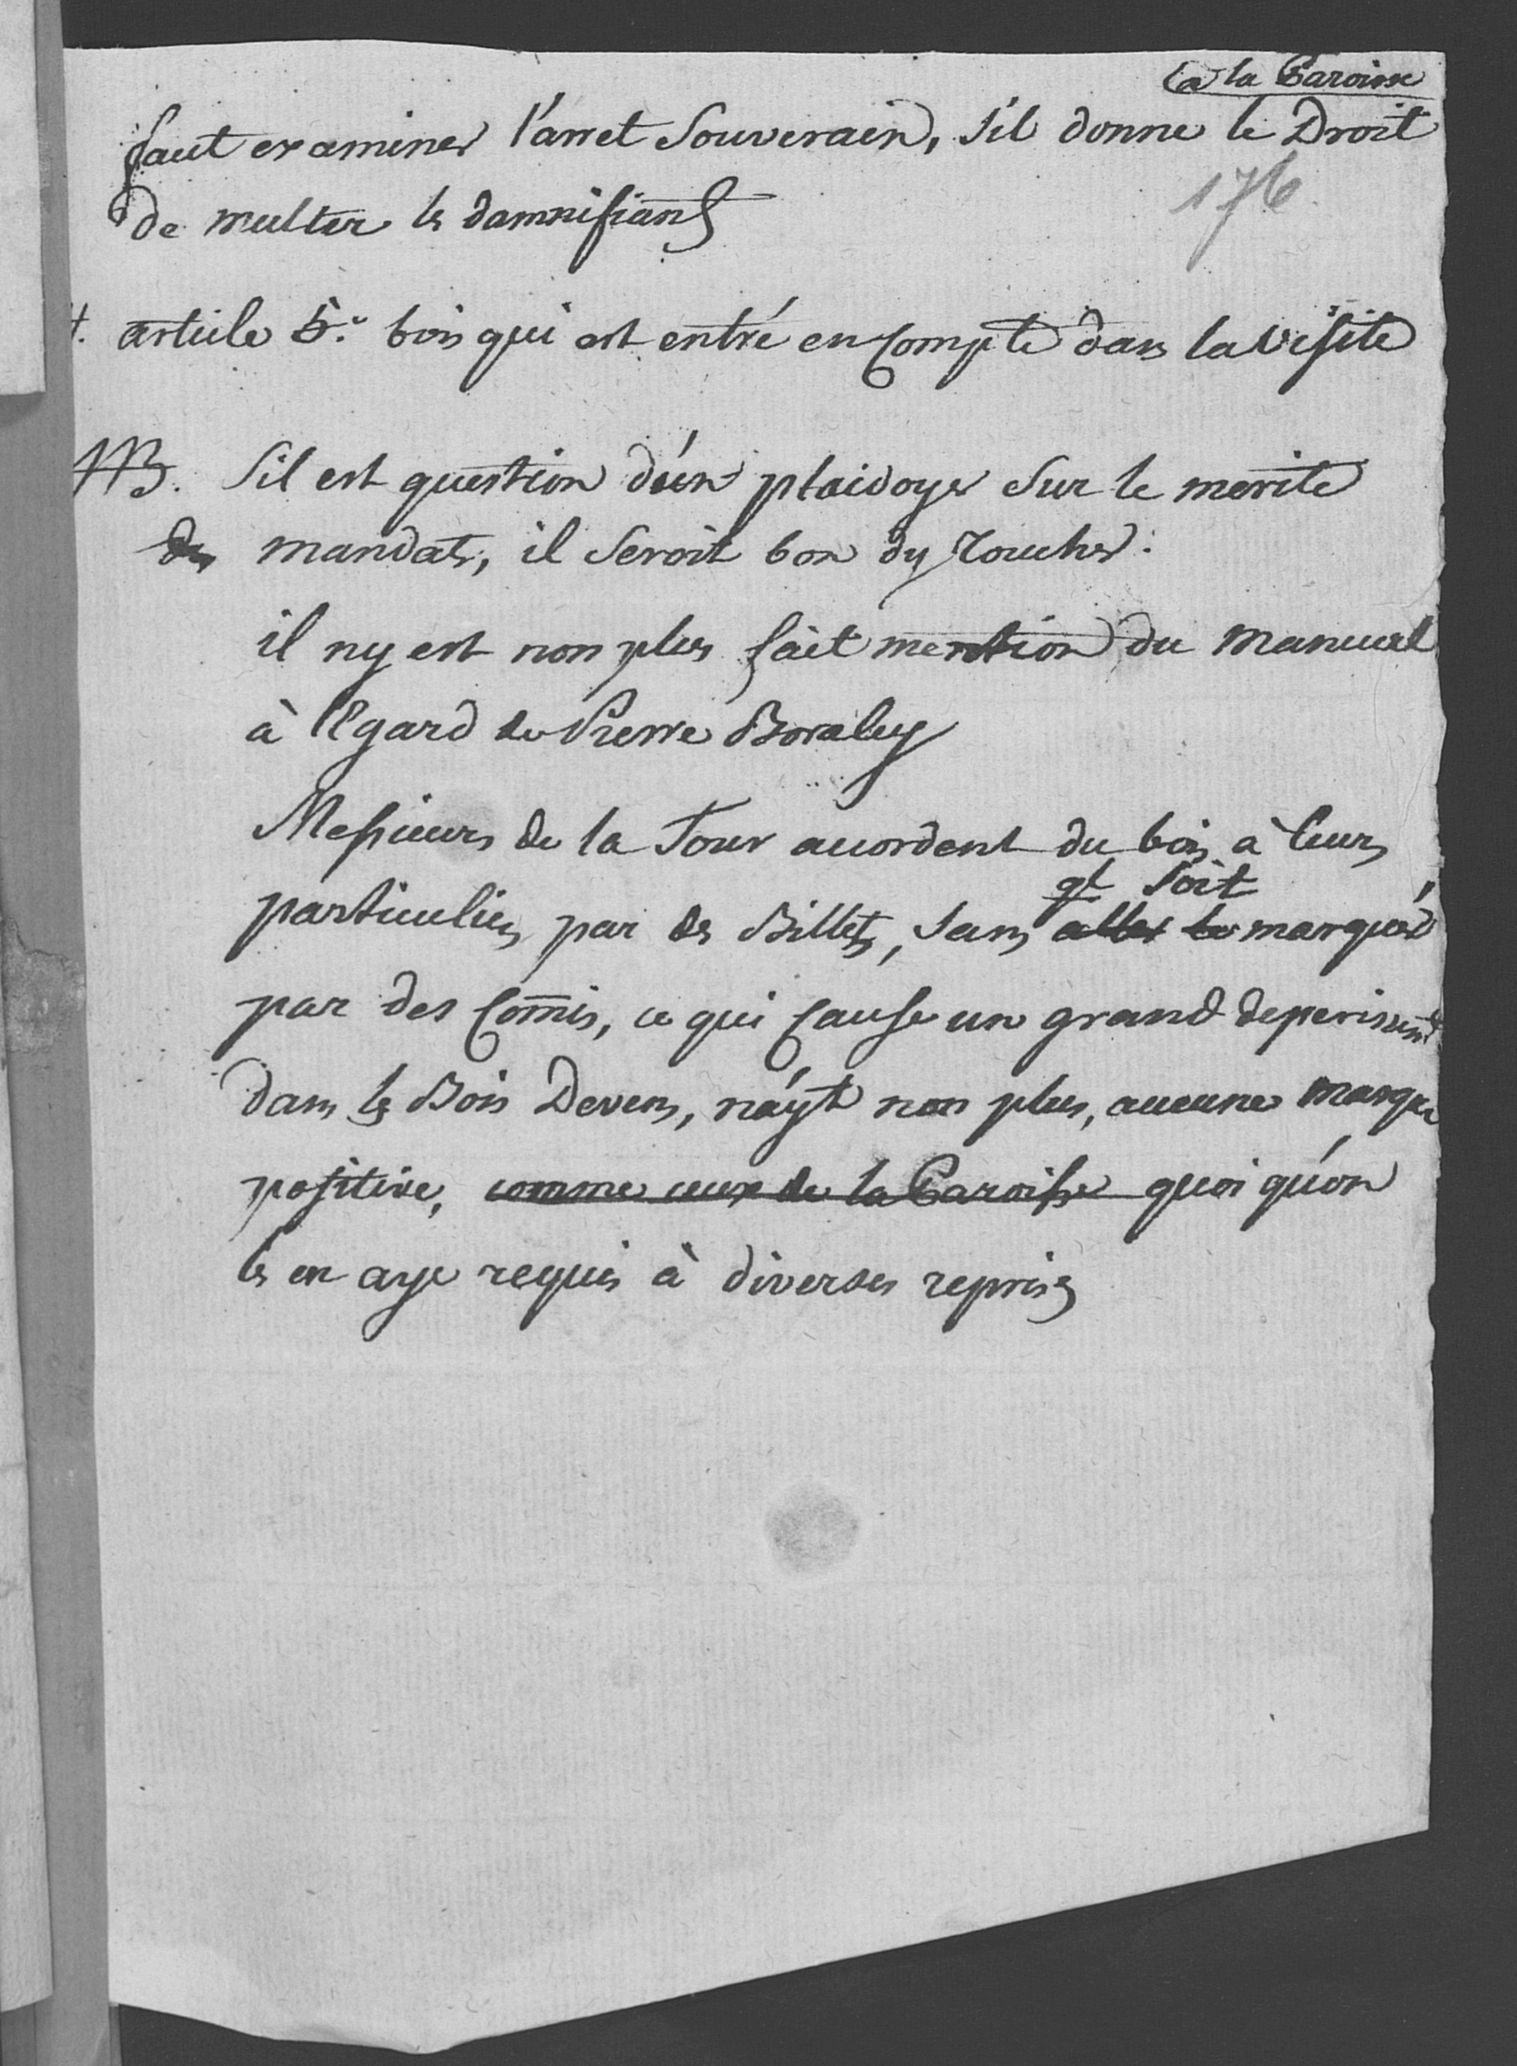 à la Paroisse
faut examiner l'arret Souverain, s'il donne le Droit
176
de multer ls damnifians
article 5.e bois qui est entré en Compte dans la Visite
NB. S'il est question d'un plaidoyer Sur le merite
des mandats, il Seroit bon dy Toucher.
il ny est non plus fait mention du Manuel
à l'Egard de Pierre Boraley
Messieurs de la Tour acordent du bois à leurs
ql Soit
particuliers par des Billets, Sans aller le marquér
par des Com̄is, ce qui Cause un grand deperissent
dans ls Bois Devens, n'ayt non plus, aucune marque
positive, comme ceux de la Paroisse quoi qu'on
ls en aye requis à diverses reprises